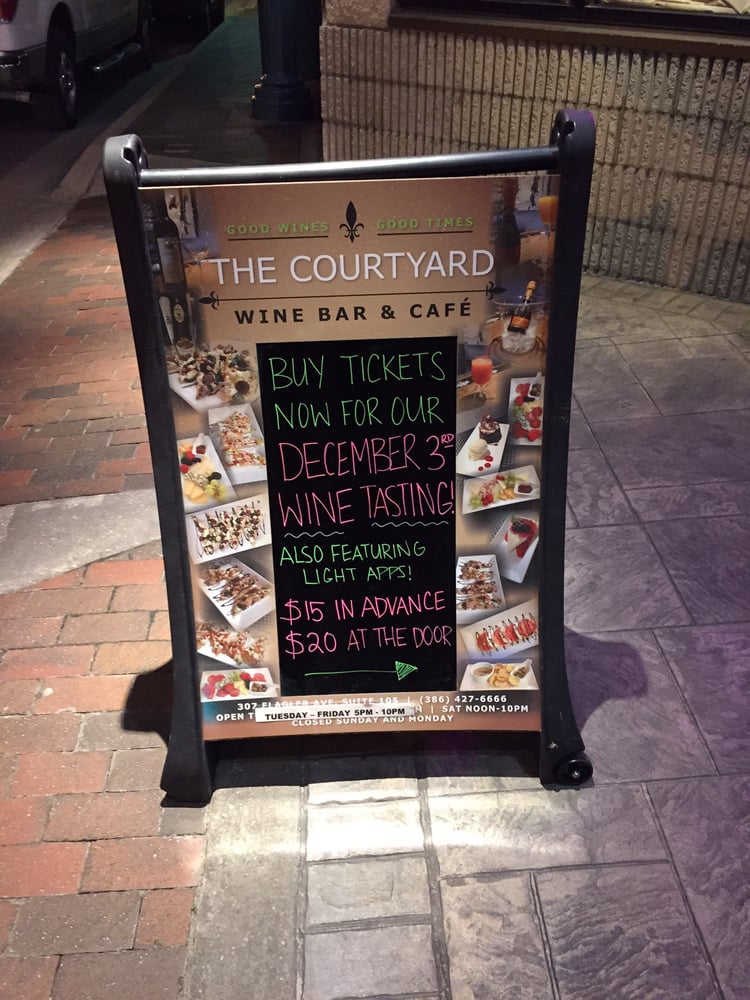 GOOD WINES GOOD TIMES
THE COURTYARD
WINE BAR & CAFÉ
BUY TICKETS
NOW FOR OUR
DECEMBER 3RD
WINE TASTING!
ALSO FEATURING
LIGHT APPS!
$15 IN ADVANCE
$20 AT THE DOOR
307 FLAGLER AVE, SUITE 105 | (386) 427-6666
OPEN T TUESDAY - FRIDAY 5PM - 10PM M | SAT NOON-10PM
CLOSED SUNDAY AND MONDAY